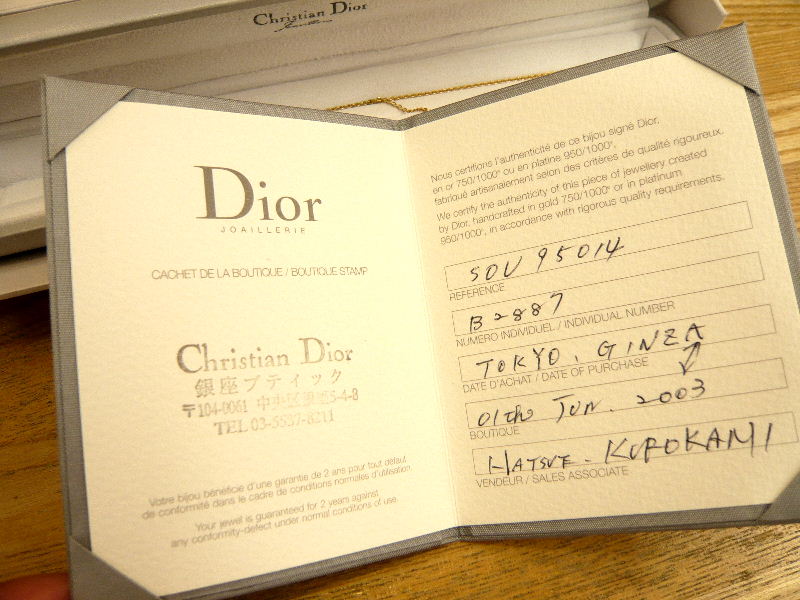 Christian Dior
Dior
JOAILLERIE
CACHET DE LA BOUTIQUE / BOUTIQUE STAMP
Christian Dior
銀座ブティック
〒104-0061 中央区銀座5-4-8
TEL 03-5537-8311
Votre bijou bénéficie d'une garantie de 2 ans pour tout défaut
de conformité dans le cadre de conditions normales d'utilisation.
Your jewel is guaranteed for 2 years against
any conformity-defect under normal conditions of use.
Nous certifions l'authenticité de ce bijou signé Dior,
en or 750/1000° ou en platine 950/1000°,
fabriqué artisanalement selon des critères de qualité rigoureux.
We certify the authenticity of this piece of jewellery created
by Dior, handcrafted in gold 750/1000° or in platinum
950/1000°, in accordance with rigorous quality requirements.
SOU 95014
REFERENCE
B2887
NUMERO INDIVIDUEL / INDIVIDUAL NUMBER
TOKYO. GINZA
DATE D'ACHAT / DATE OF PURCHASE
01the JUN. 2003
BOUTIQUE
HATSUE. KUROKAMI
VENDEUR / SALES ASSOCIATE